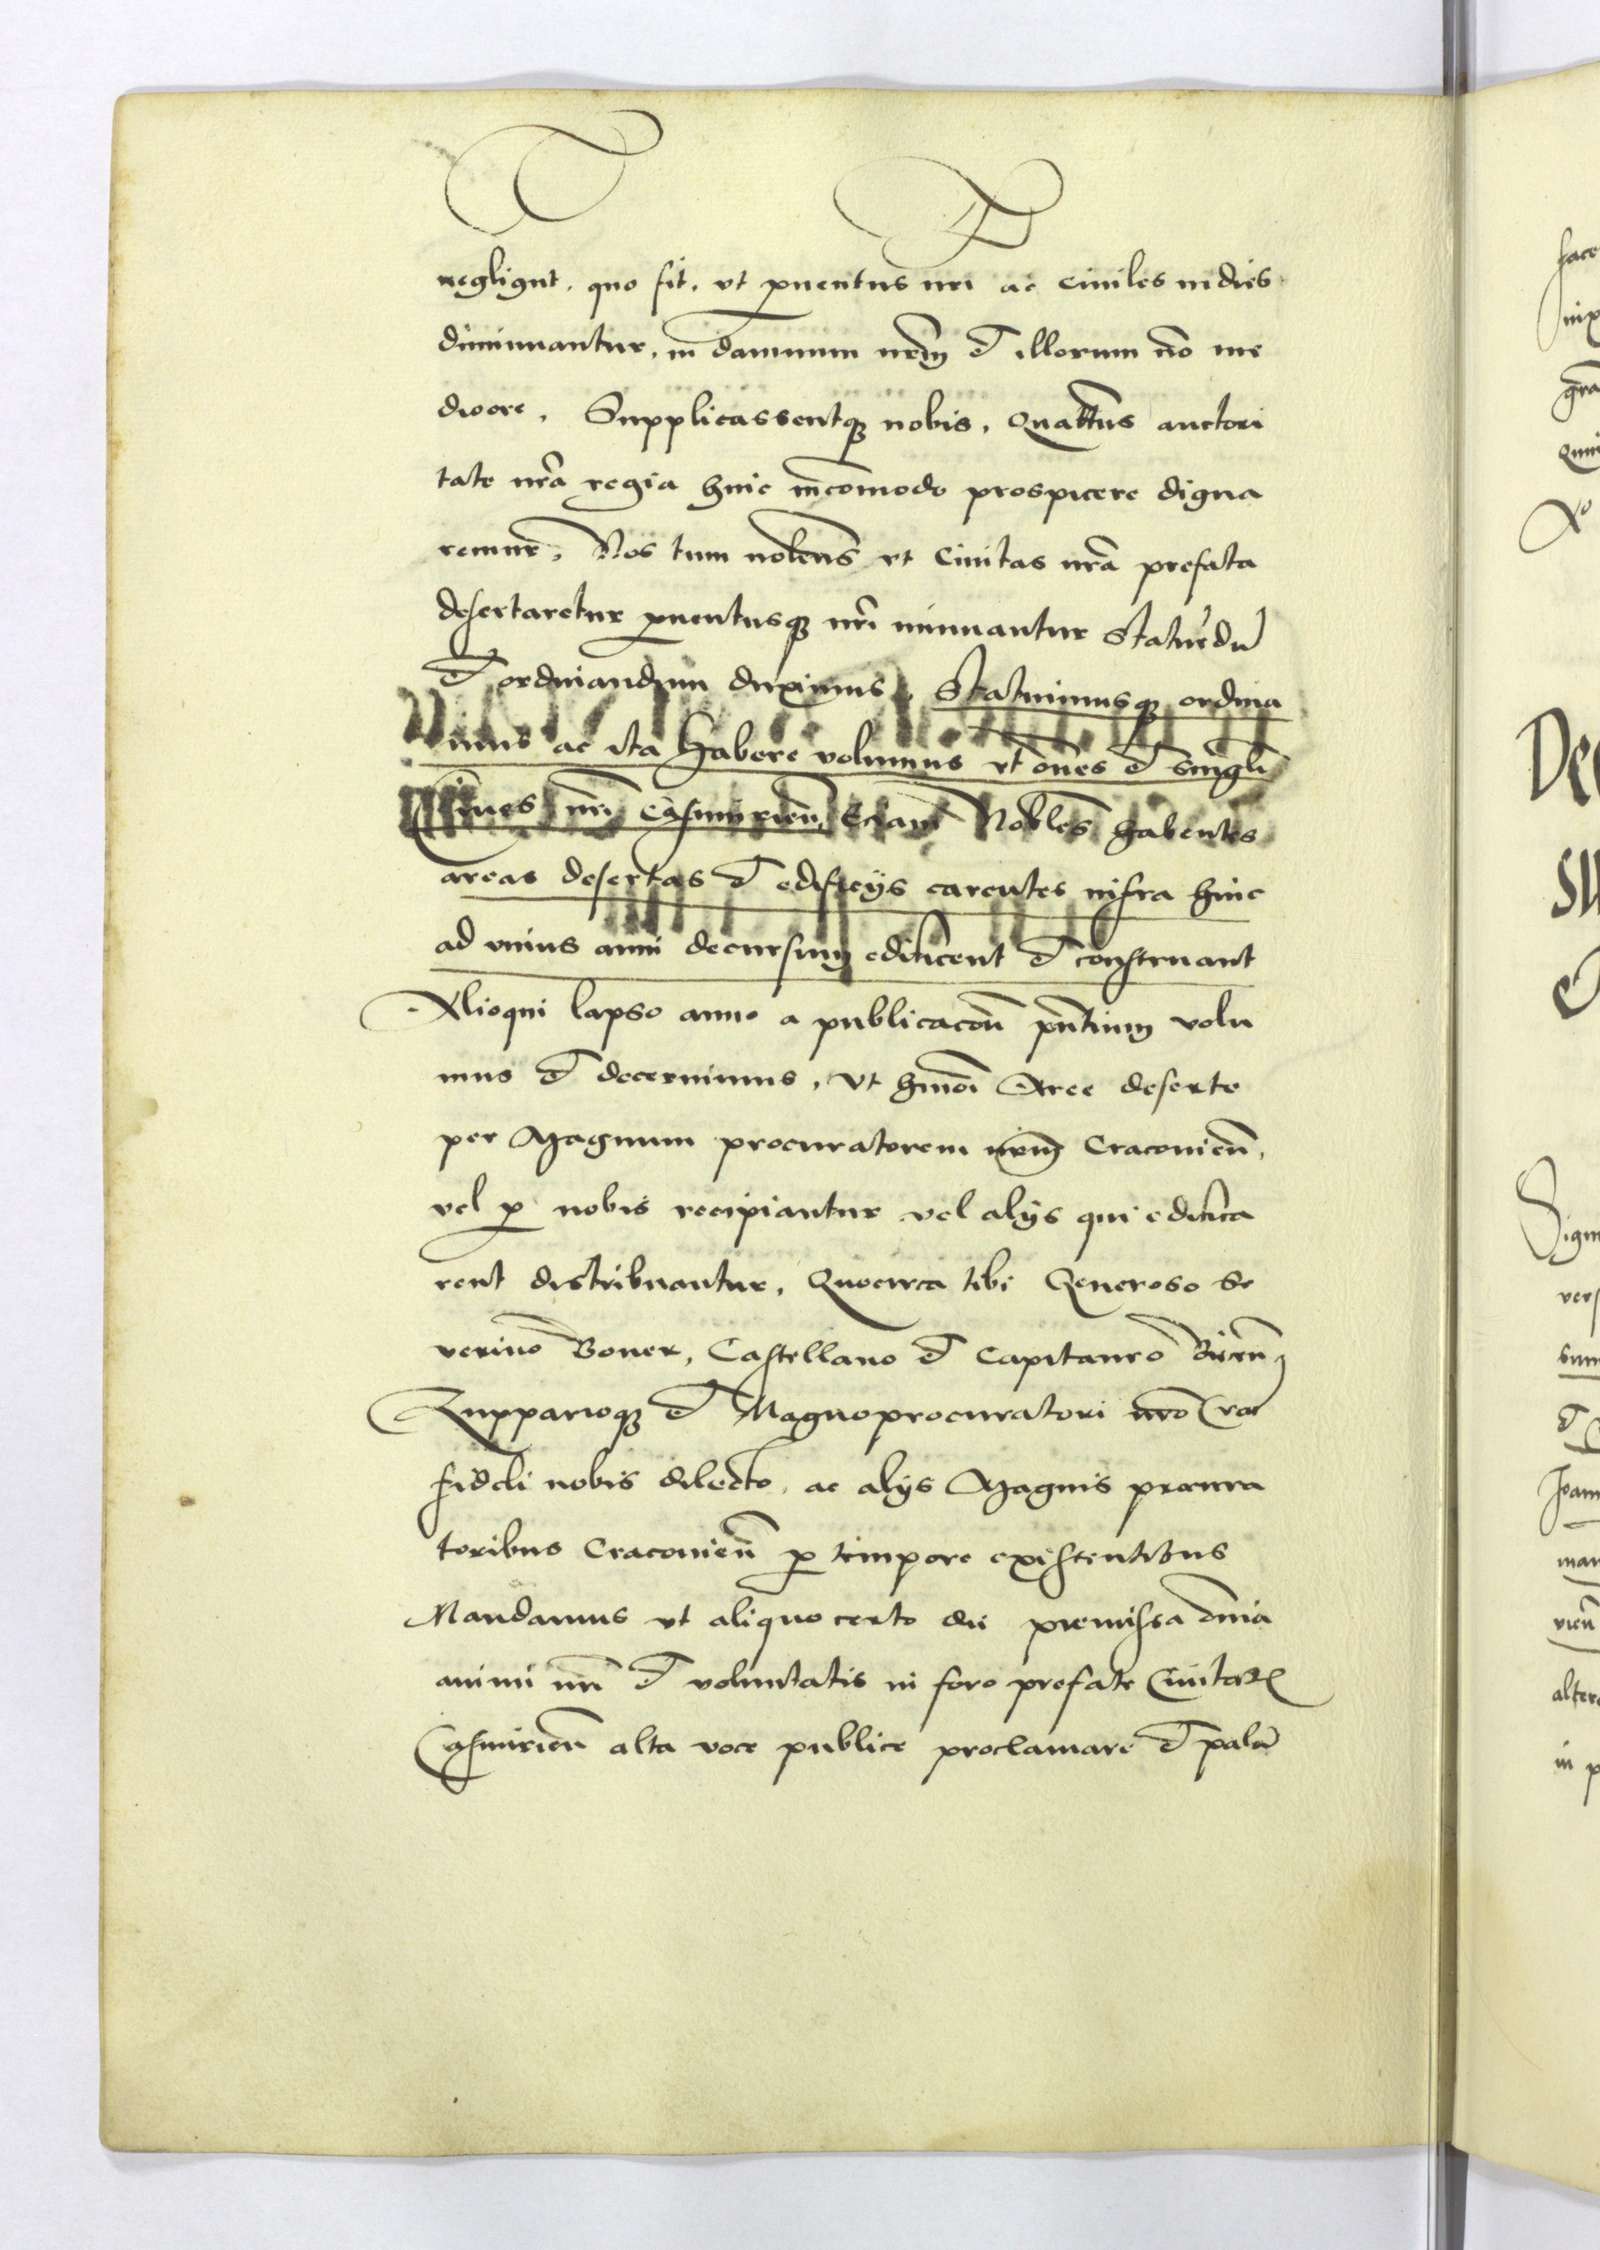 neglignt. quo fit, vt ꝓuentus nri ac ciuiles indies
diminuantur, in damnum nrm̃ et illorum nõ me
diocre. Supplicassentqꝫ nobis, Quatt̃us auctori
tate nrã regia huic incõmodo prospicere digna
remur, Nos tum nolent̃s vt Ciuitas nrã prefata
desertaretur ꝓuentusqꝫ nr̃i minuantur Statuẽdũ
et ordinandum duximus, Statuimusqꝫ ordina
mus ac ita habere volumus vt õnes et singli
Ciues nr̃i Casmirieñ, Eciam Nobles̃ habentes
areas desertas et edificijs carentes infra hinc
ad vnius anni decursum edificent et construant
Alioqui lapso anno a publicacoñ pñtium volu
mus et decernimus, vt hmõi Aree deserte
per Magnum procuratorem nrm̃ Cracouieñ,
vel ꝓ nobis recipiantur vel alijs qui edifica
rent distribuantur, Quocirca tibi Generoso Se
verino Boner, Castellano et Capitaneo Biecen̄
Zupparioqꝫ et Magnoprocuratori nrõ Crac
fideli nobis dilecto, ac alijs Magnis procura
toribus Cracouieñ ꝓ tempore existentibus
Mandamus vt aliquo certo die premissa om̃ia
animi nr̃i et voluntatis in foro prefate Ciuitatis
Casmirieñ alta voce publice proclamare et palã